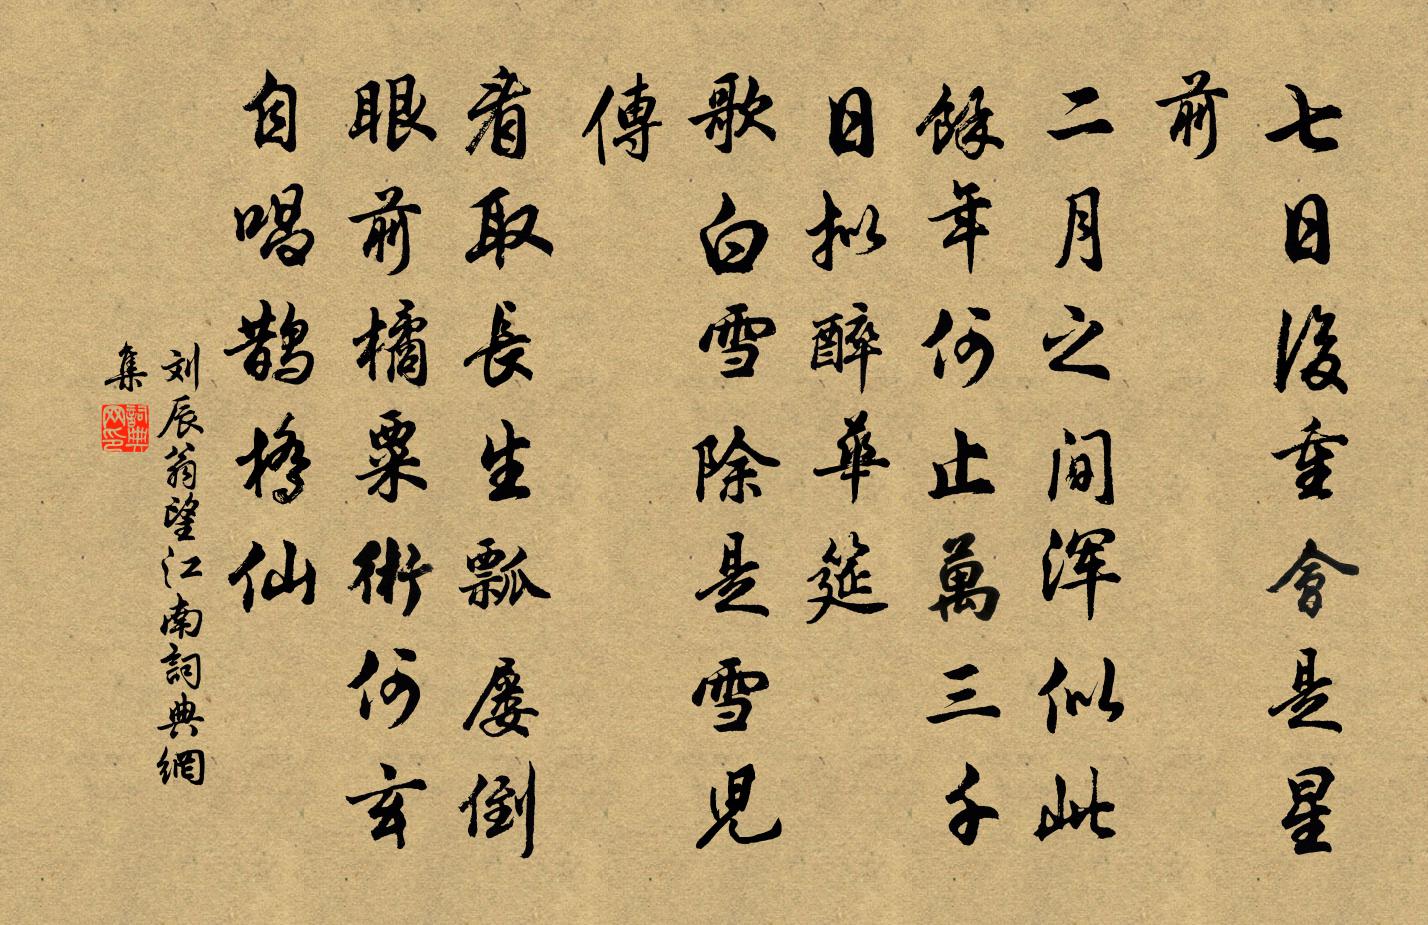 七日後重會是星
前
二月之间浑似此
餘年何止萬三千
日拟醉華筵
歌白雪除是雪児
傳
看取長生瓢屡倒
眼前橘粟術何玄
自唱鹊橋仙
刘辰翁望江南詞典網
集
詞典网印